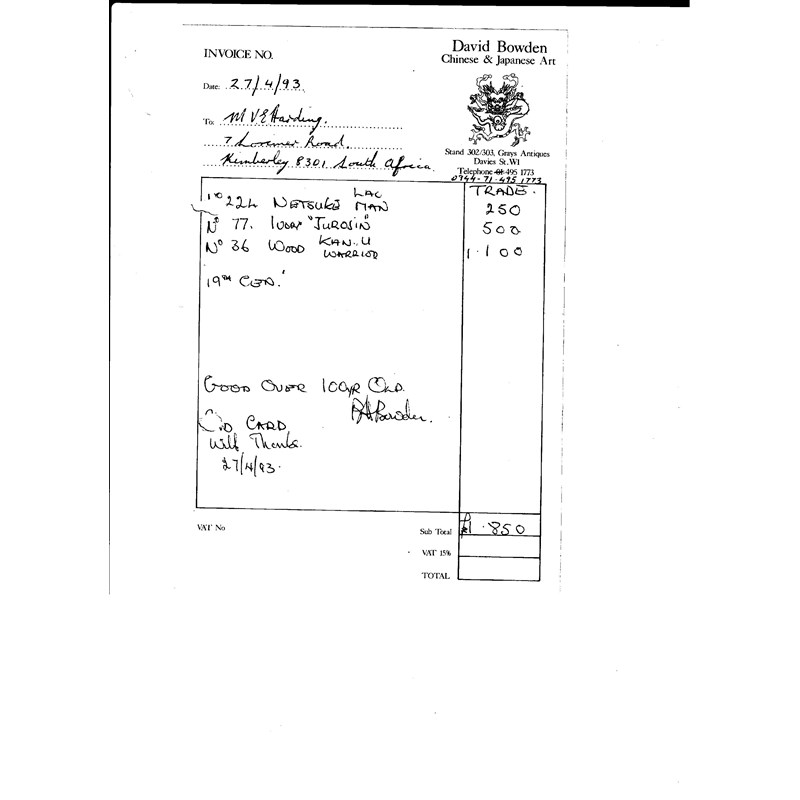 David Bowden
Chinese & Japanese Art
INVOICE NO.
Date: 27/4/93
To: M V E Harding.
7 Lorimer Road,
Kimberley 8301 South Africa.
Stand 302/303, Grays Antiques
Davies St. W1
Telephone 01 495 1773
0944-71-495 1773
TRADE.
Nº 224 NETSUKE LAC MAN 250
Nº 77. IVORY "JUROJIN" 500
Nº 36 WOOD KAN-U WARRIOR 1·100
19TH CEN.
GOOD OVER 100YR OLD.
Bowden.
CARD
With Thanks.
27/4/93.
VAT No
Sub Total £1·850
VAT 15%
TOTAL